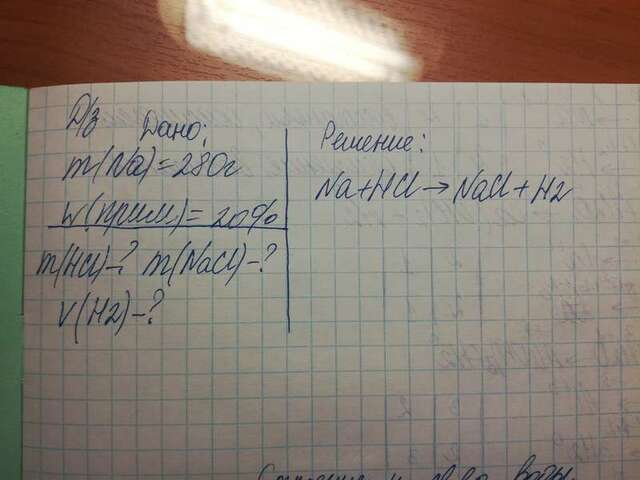 Д/з
Дано:
m(Na)=280г
w(прим)=20%
m(HCl)-? m(NaCl)-?
V(H2)-?
Решение:
Na+HCl→NaCl+H2